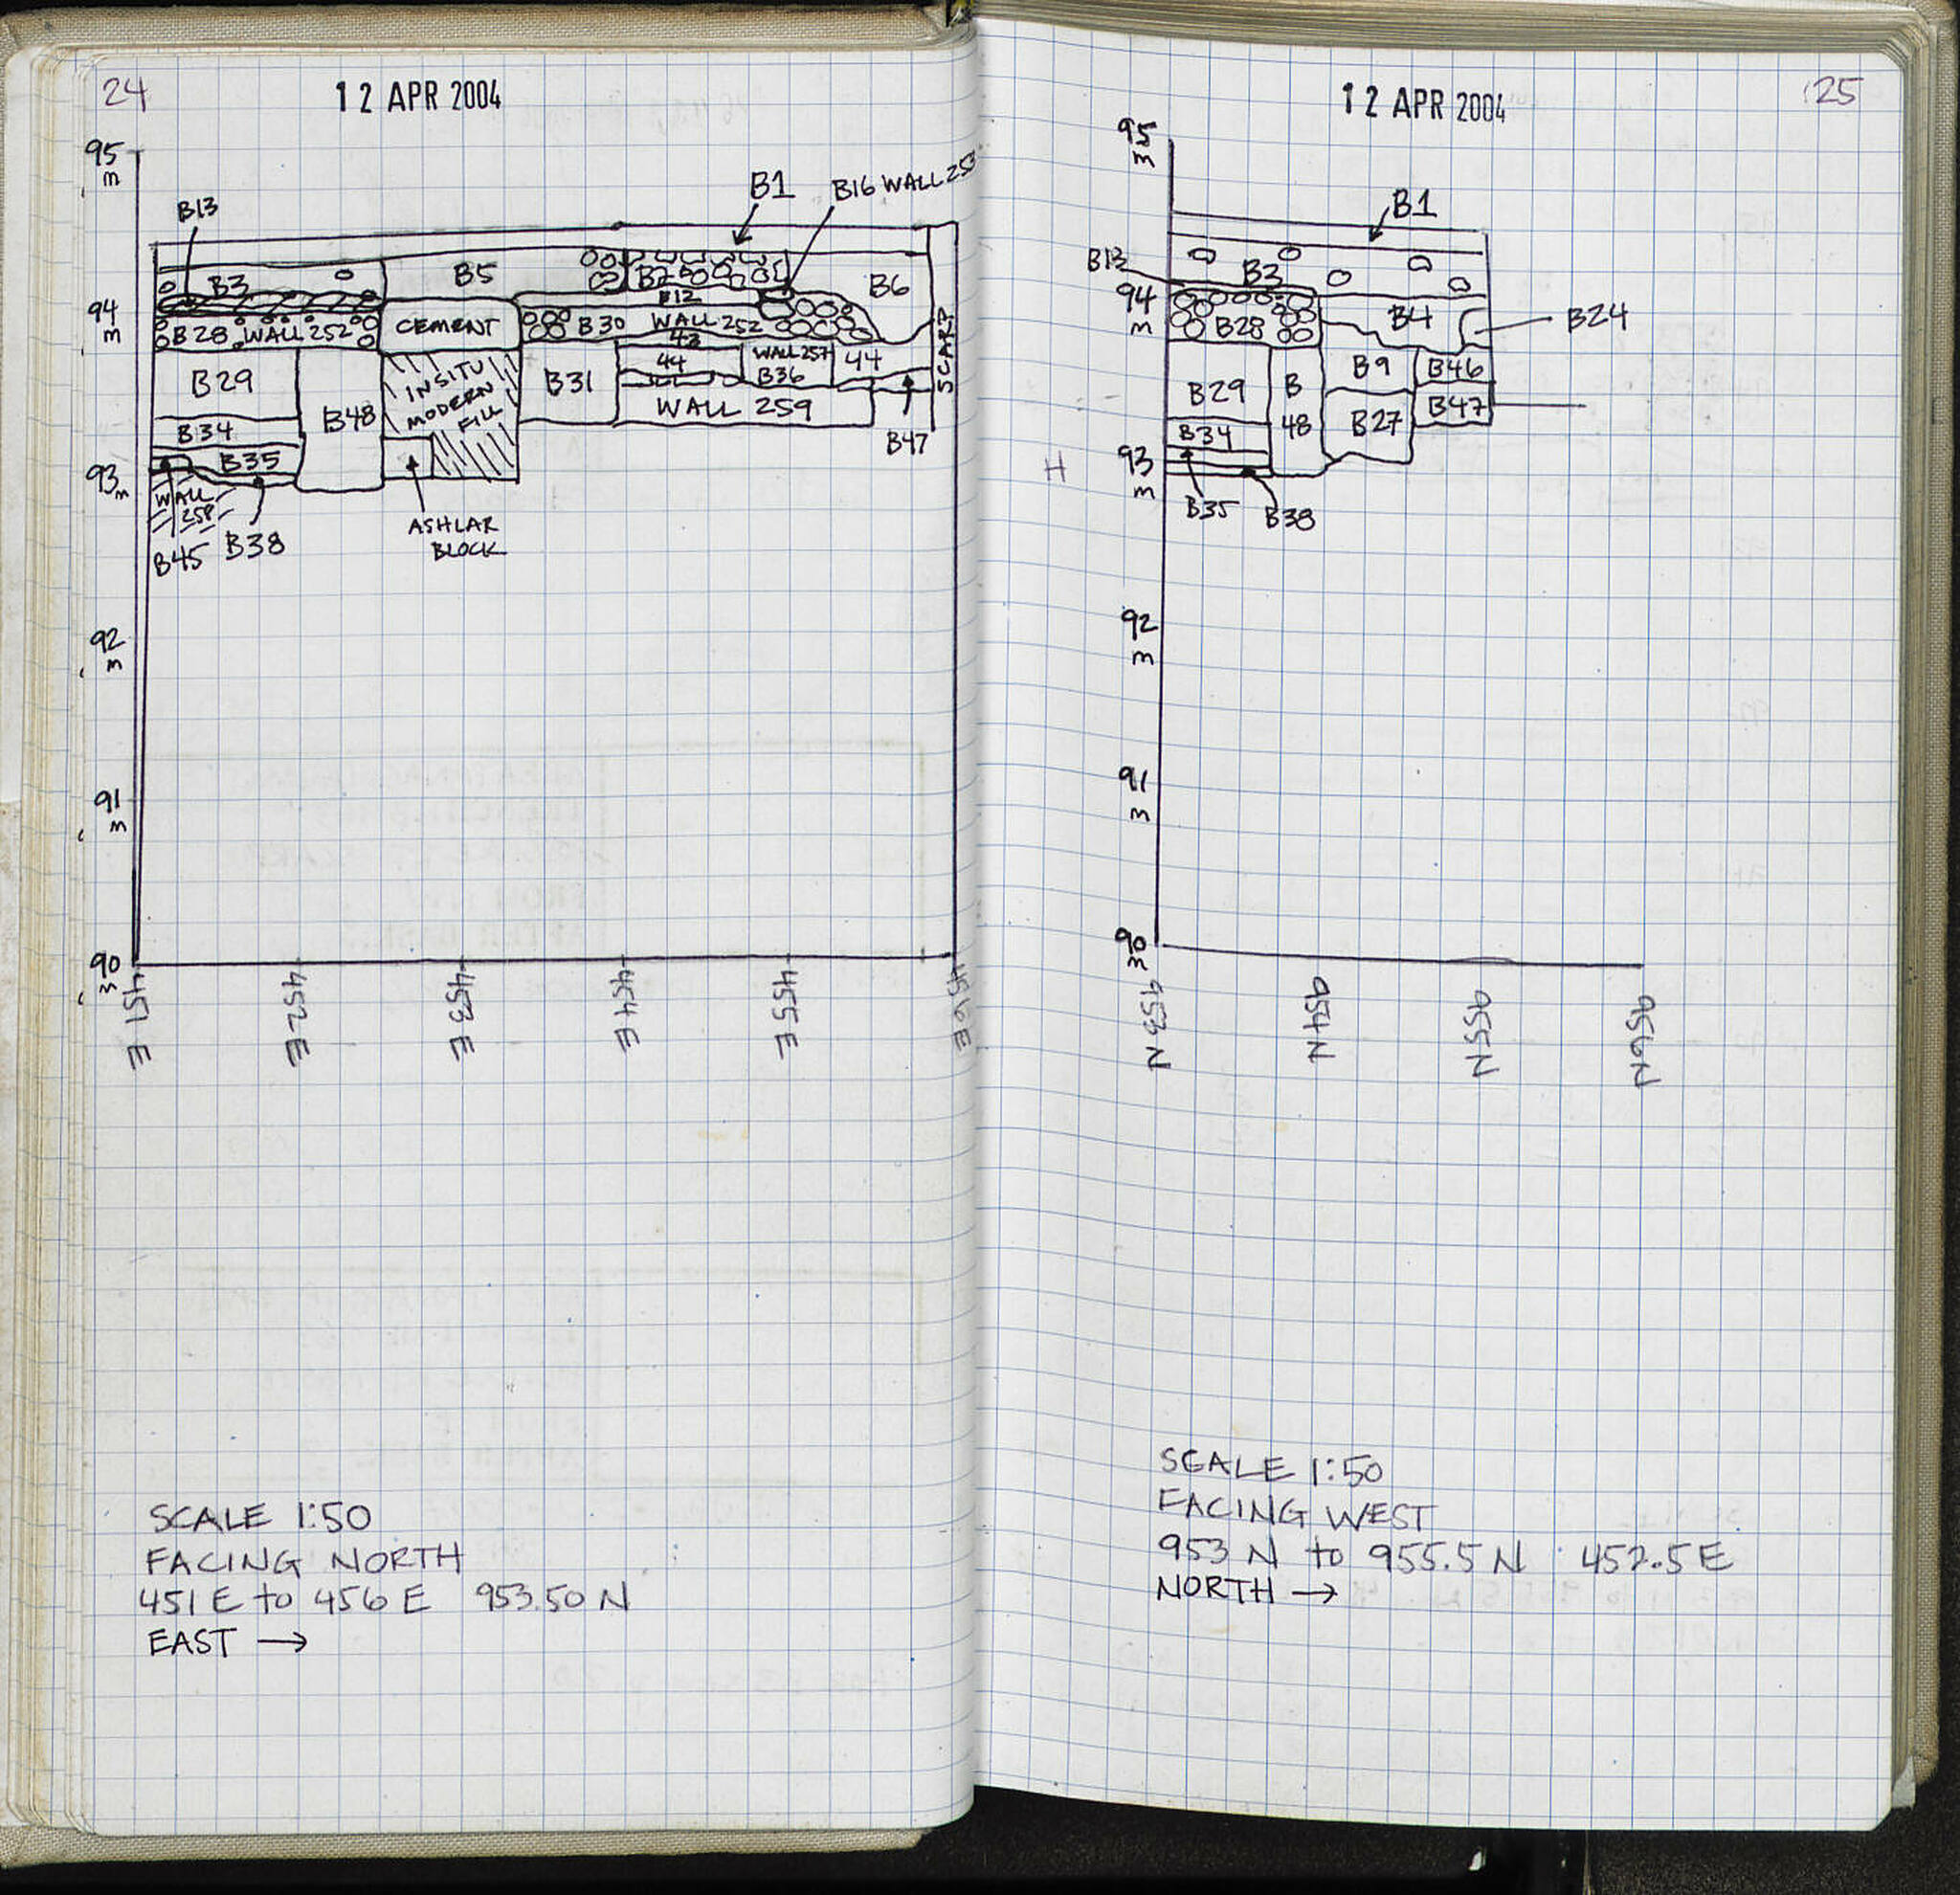 24
12 APR 2004
95
m
B13
B1
B16 WALL 253
B3
B5
B2
B6
94
m
B12
B28 WALL 252
CEMENT
B30 WALL 252
43
B29
B48
IN SITU
MODERN
FILL
B31
44
WALL 257
B36
44
SCARP
WALL 259
B34
B35
B47
93
m
WALL
258
B45
B38
ASHLAR
BLOCK
92
m
91
m
90
m
451 E
452 E
453 E
454 E
455 E
456 E
SCALE 1:50
FACING NORTH
451 E to 456 E 953.50 N
EAST →
25
12 APR 2004
95
m
B1
B13
B3
94
m
B28
B4
B24
B29
B
48
B9
B46
B27
B47
B34
H
93
m
B35
B38
92
m
91
m
90
m
953 N
954 N
955 N
956 N
SCALE 1:50
FACING WEST
953 N to 955.5 N 452.5 E
NORTH →